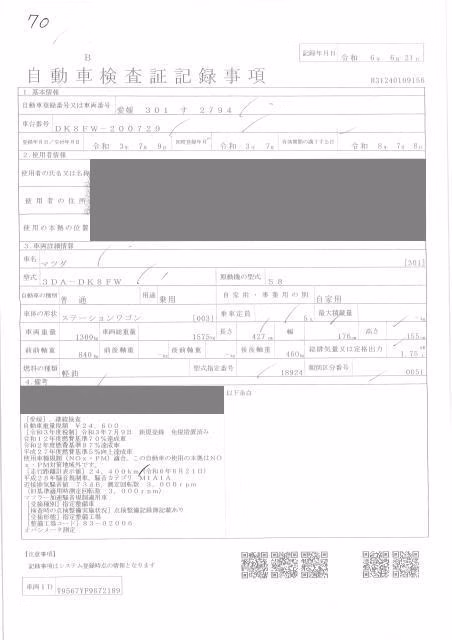 70
B
記録年月日 令和 6年 6月21日
自動車検査証記録事項
831240109156
1.基本情報
自動車登録番号又は車両番号 愛媛 301 す 2794
車台番号 DK8FW-200729
登録年月日/交付年月日 令和 3年 7月 9日 初度登録年月 令和 3年 7月 有効期間の満了する日 令和 8年 7月 8日
2.使用者情報
使用者の氏名又は名称
使用者の住所
使用の本拠の位置
3.車両詳細情報
車名 マツダ [301]
型式 3DA-DK8FW 原動機の型式 S8
自動車の種別 普通 用途 乗用 自家用・事業用の別 自家用
車体の形状 ステーションワゴン [003] 乗車定員 5人 最大積載量 -kg
車両重量 1300kg 車両総重量 1575kg 長さ 427cm 幅 176cm 高さ 155cm
前前軸重 840kg 前後軸重 -kg 後前軸重 -kg 後後軸重 460kg 総排気量又は定格出力 1.75L
燃料の種類 軽油 型式指定番号 18924 類別区分番号 0051
4.備考
以下余白
[愛媛],継続検査
自動車重量税額 ¥24,600
[令和3年度税制]令和3年7月9日 新規登録 免税措置済み
令和12年度燃費基準70%達成車
令和2年度燃費基準97%達成車
平成27年度燃費基準5%向上達成車
使用車種規制(NOx・PM)適合,この自動車の使用の本拠はNO
x・PM対策地域外です。
[走行距離計表示値]24,400km(令和6年6月21日)
平成28年騒音規制車,騒音カテゴリ M1A1A
近接排気騒音値 73dB,測定回転数 3,000rpm
マフラー加速騒音規制適用車
[受検種別]指定整備車
[検査時の点検整備実施状況]点検整備記録簿記載あり
[受検形態]指定整備工場
[整備工場コード]83-02006
オパシメータ測定
【注意事項】
記録事項はシステム登録時点の情報となります
車両ID Y9567YF9672189